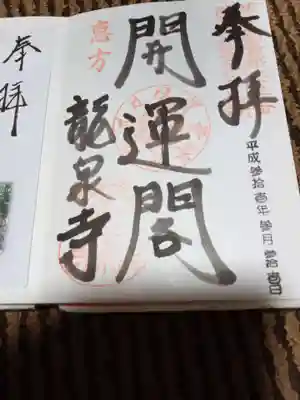 奉拝
平成参拾壱年参月参拾壱日
開運閣
恵方
龍泉寺
奉拝